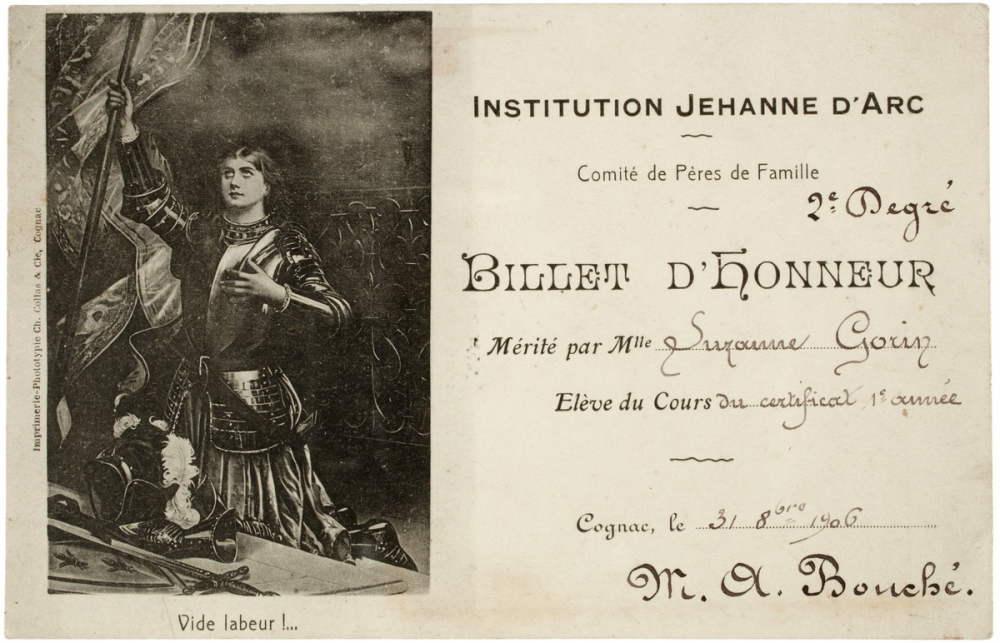 Imprimerie-Phototypie Ch. Collas & Cie, Cognac
Vide labeur !...
INSTITUTION JEHANNE D'ARC
Comité de Pères de Famille
2e Degré
BILLET D'HONNEUR
Mérité par Mlle Suzanne Gorin
Elève du Cours du certificat 1e année
Cognac, le 31 8bre 1906
M. A. Bouché.